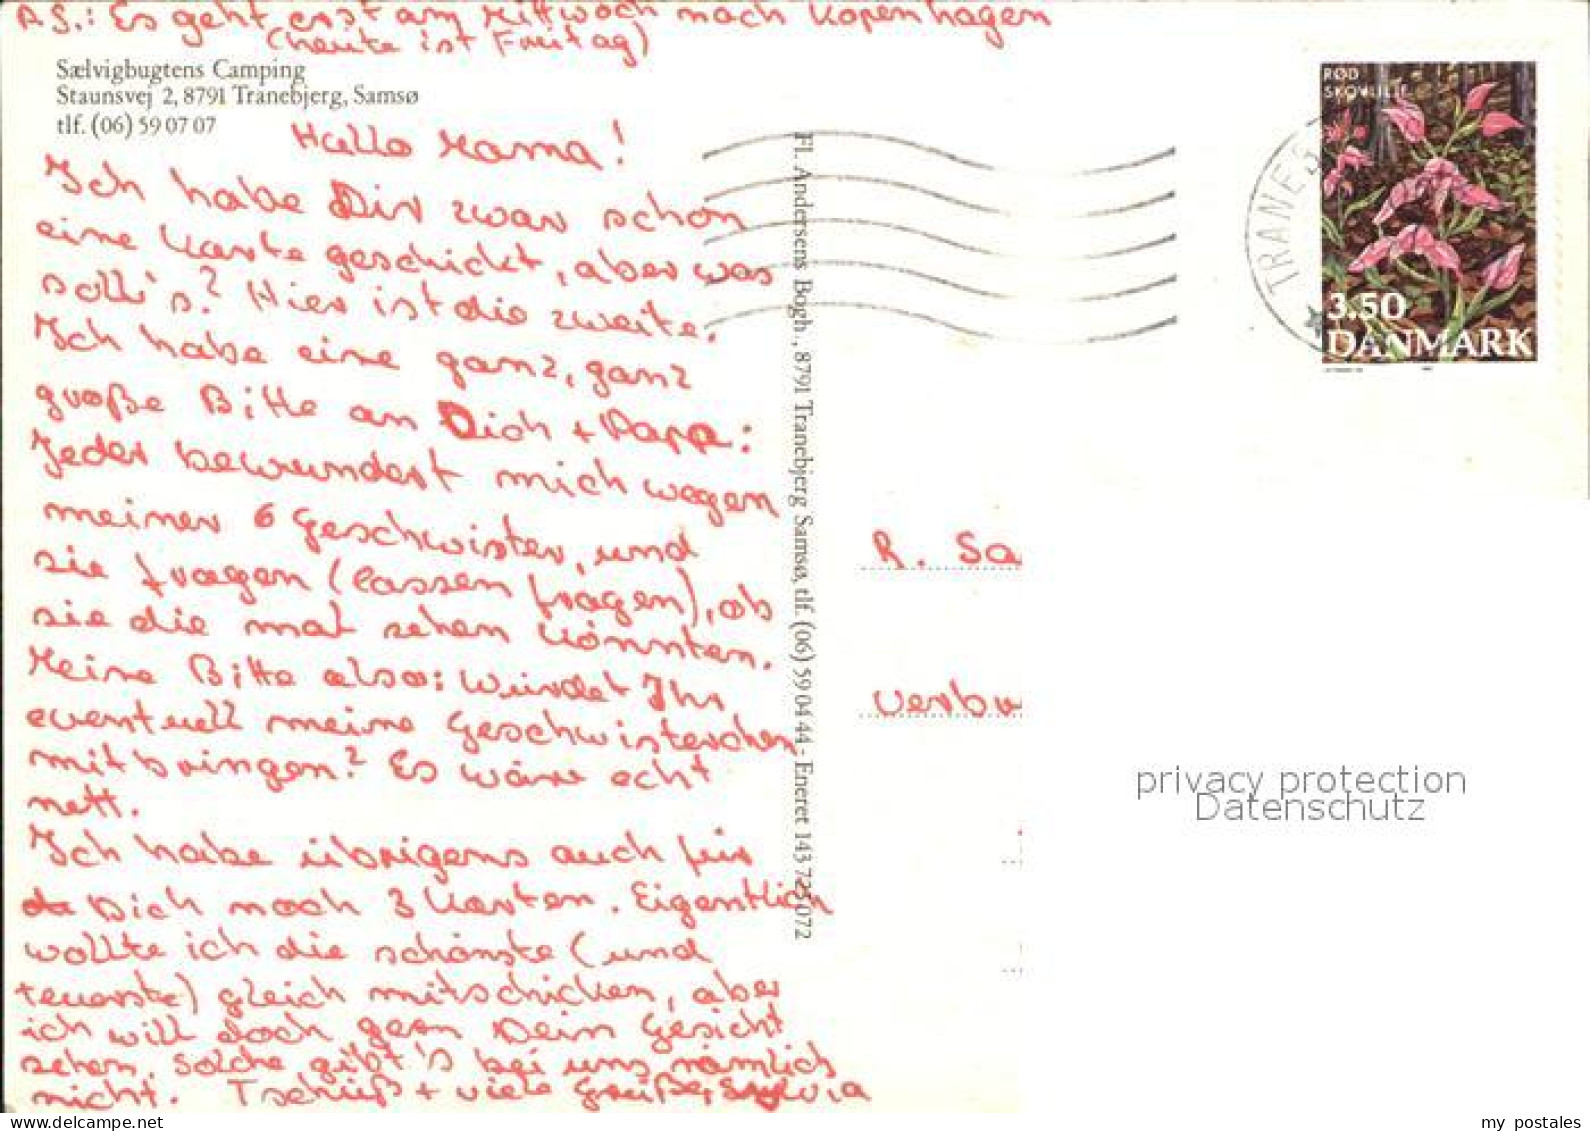 P.S.: Es geht erst am Mittwoch nach Kopenhagen
(heute ist Freitag)
Sælvigbugtens Camping
Staunsvej 2, 8791 Tranebjerg, Samsø
tlf. (06) 59 07 07
Hallo Mama!
Ich habe Dir zwar schon
eine Karte geschickt, aber was
soll's? Hier ist die zweite.
Ich habe eine ganz, ganz
große Bitte an Dich + Papa:
Jeder bewundert mich wegen
meiner 6 Geschwister, und
sie fragen (lassen fragen), ob
sie die mal sehen könnten.
Meine Bitte also: Würdet Ihr
eventuell meine Geschwisterchen
mitbringen? Es wäre echt
nett.
Ich habe übrigens auch für
Dich noch 3 Karten. Eigentlich
wollte ich die schönste (und
teuerste) gleich mitschicken, aber
ich will doch gern Dein Gesicht
sehen. Solche gibt's bei uns nämlich
nicht. Tschüß + viele Grüße, Sylvia
Fl. Andersens Bogh., 8791 Tranebjerg Samsø, tlf. (06) 59 04 44 - Eneret 143 725 072
RØD
SKOVLILIE
3.50
DANMARK
TRANEB
R. Sa
Verbu
privacy protection
Datenschutz
my postales